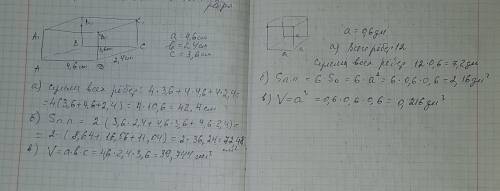 A₁
B₁
D₁
A
B
C
D
4,6 см
2,4 см
3,6 см
a = 4,6 см
b = 2,4 см
c = 3,6 см
а) сумма всех рёбер: 4·3,6 + 4·4,6 + 4·2,4 =
= 4(3,6 + 4,6 + 2,4) = 4·10,6 = 42,4 см
б) Sп.п = 2 (3,6·2,4 + 4,6·3,6 + 4,6·2,4) =
= 2·(8,64 + 16,56 + 11,04) = 2·36,24 = 72,48
в) V = a·b·c = 4,6·2,4·3,6 = 39,744 см³
a
a
a = 0,6 дм
а) Всего рёбер: 12
Сумма всех рёбер 12·0,6 = 7,2 дм
Sп.п = 6 Sо = 6·a² = 6·0,6·0,6 = 2,16 дм²
в) V = a³ = 0,6·0,6·0,6 = 0,216 дм³